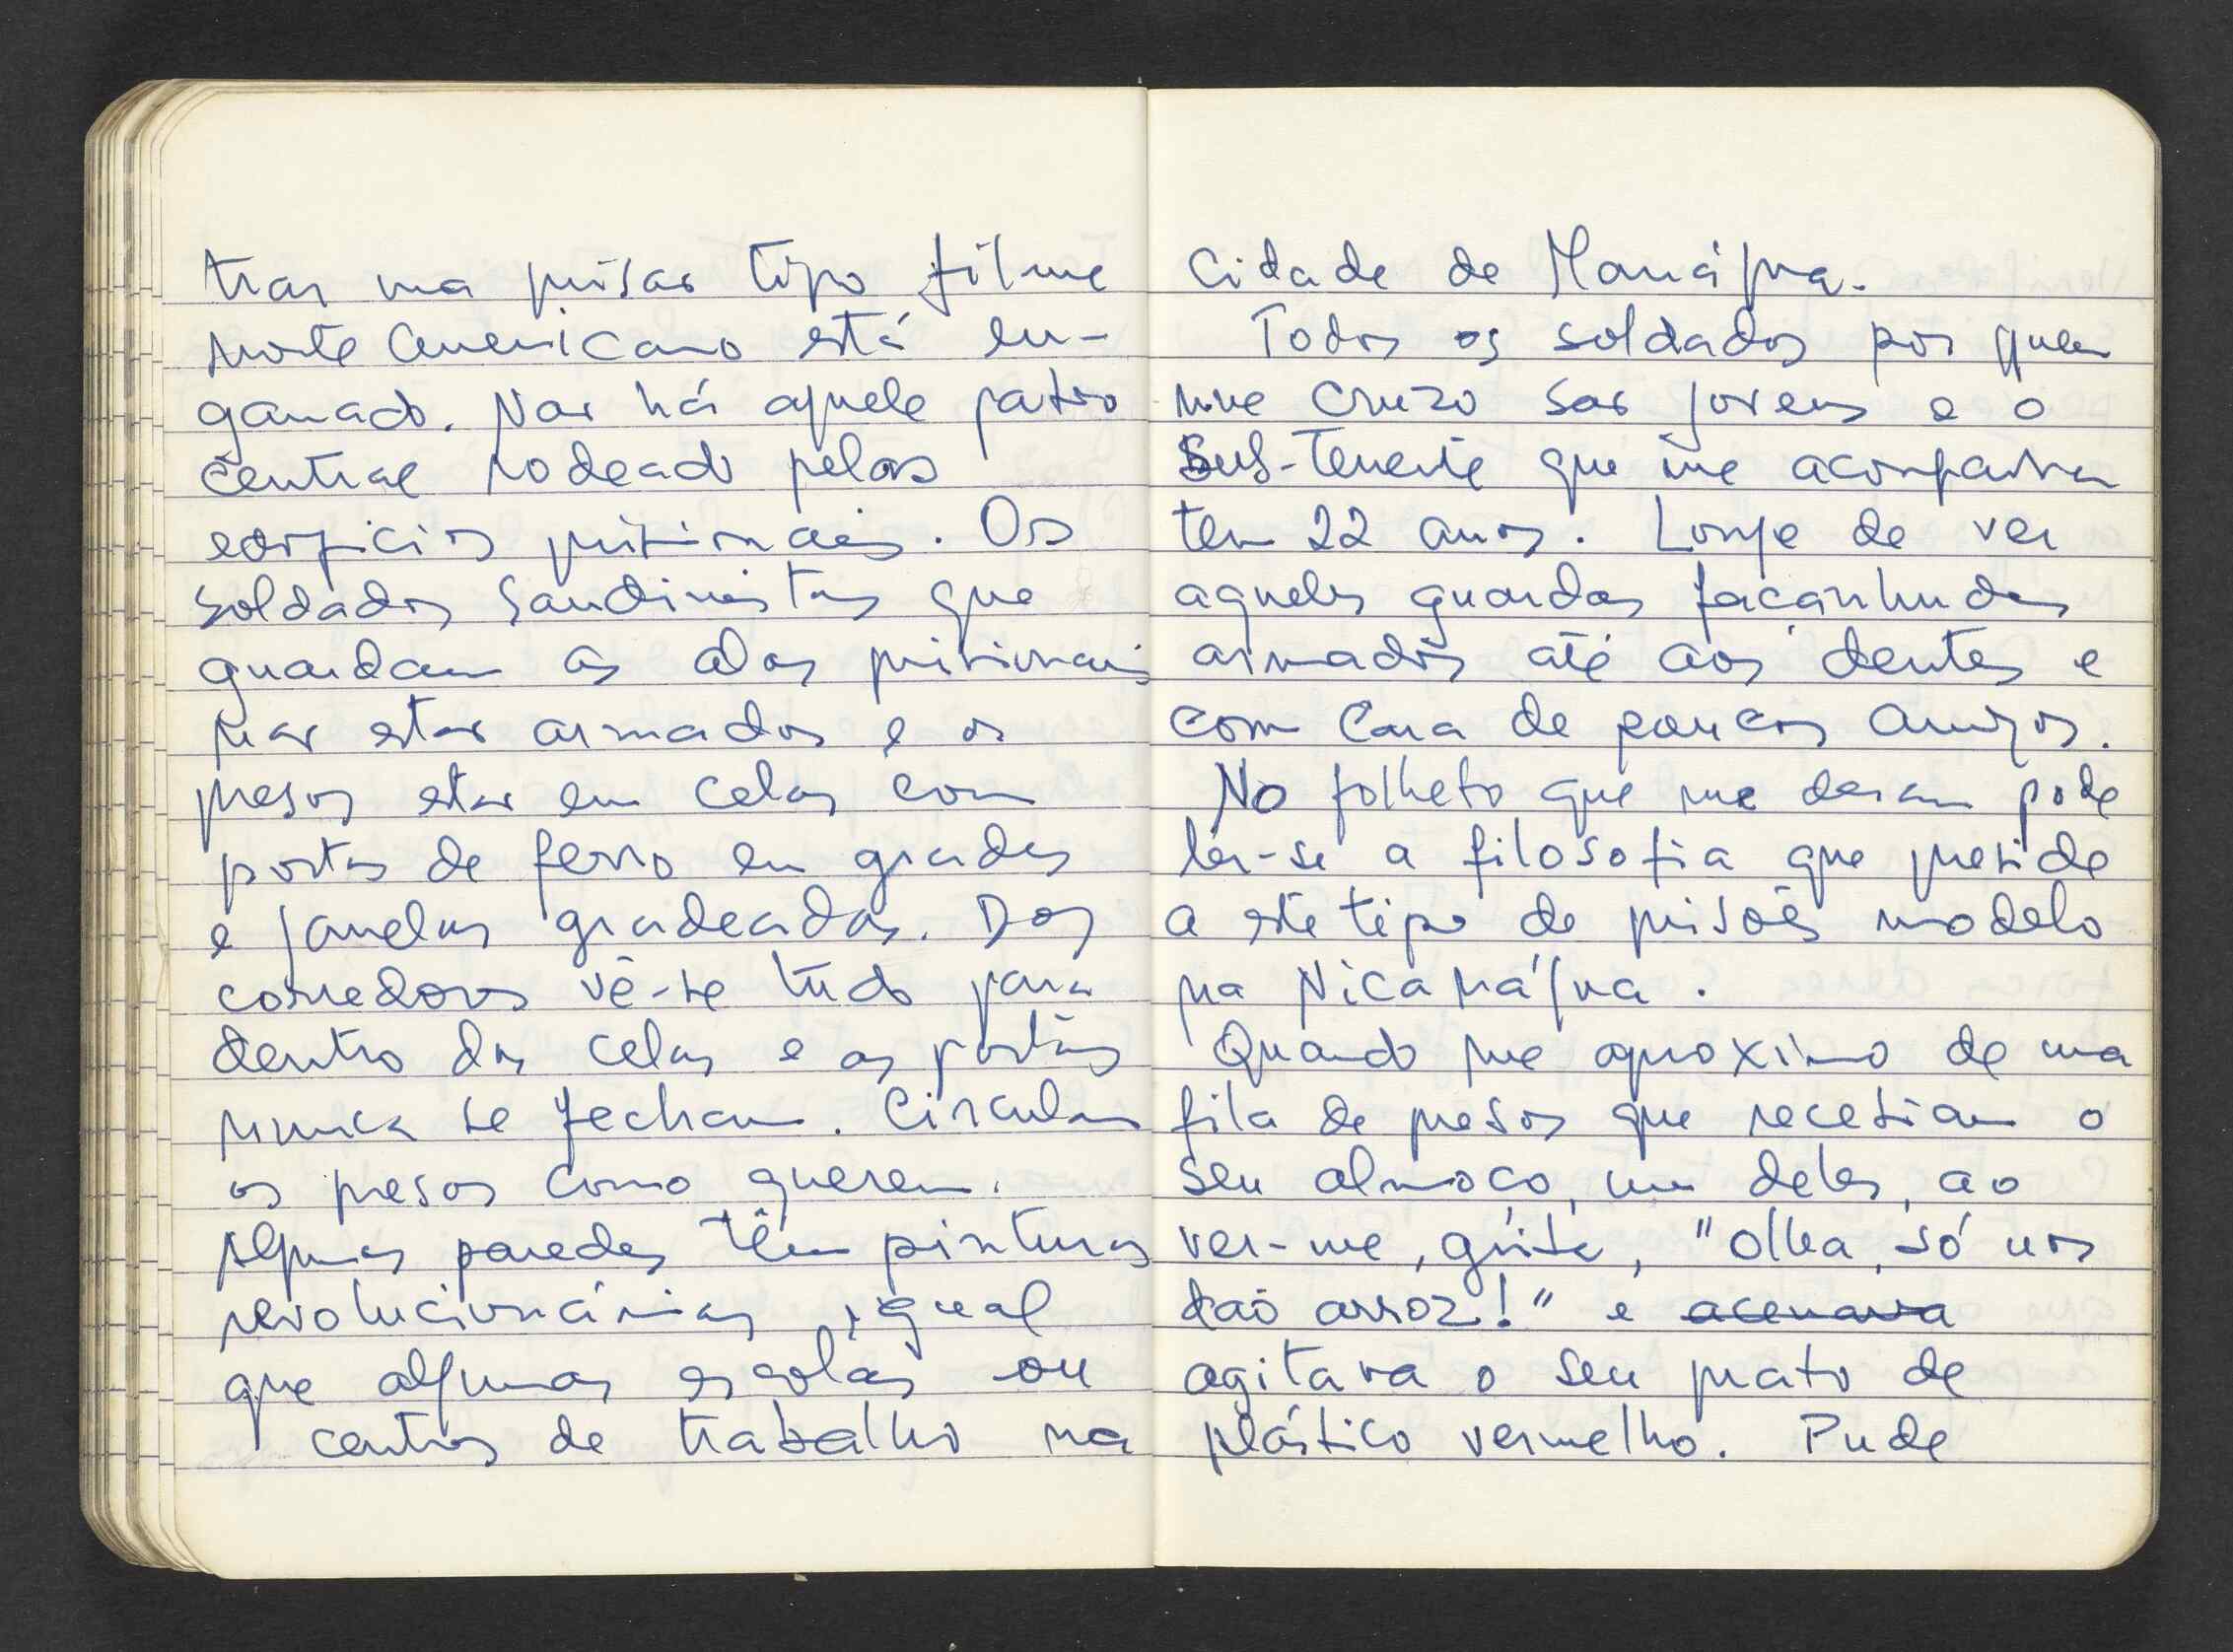 trar uma prisão tipo filme
norte americano está en-
ganado. Não há aquele pátio
central rodeado pelos
edifícios prisionais. Os
soldados Sandinistas que
guardam as alas prisionais
não estão armados e os
presos estão em celas com
portas de ferro em grades
e janelas gradeadas. Dos
corredores vê-se tudo para
dentro das celas e as portas
nunca se fecham. Circulam
os presos como querem.
Algumas paredes têm pinturas
revolucionárias, igual
que algumas escolas ou
centros de trabalho na
Cidade de Manágua.
Todos os soldados por quem
me cruzo são jovens e o
Sub-Tenente que me acompanha
tem 22 anos. Longe de ver
aqueles guardas façanhudos
armados até aos dentes e
com cara de poucos amigos.
No folheto que me deram pode
ler-se a filosofia que preside
a este tipo de prisões modelo
na Nicarágua.
Quando me aproximo de uma
fila de presos que recebiam o
seu almoço, um deles, ao
ver-me, grita, "olha, só nos
dão arroz!" e acenava
agitava o seu prato de
plástico vermelho. Pude